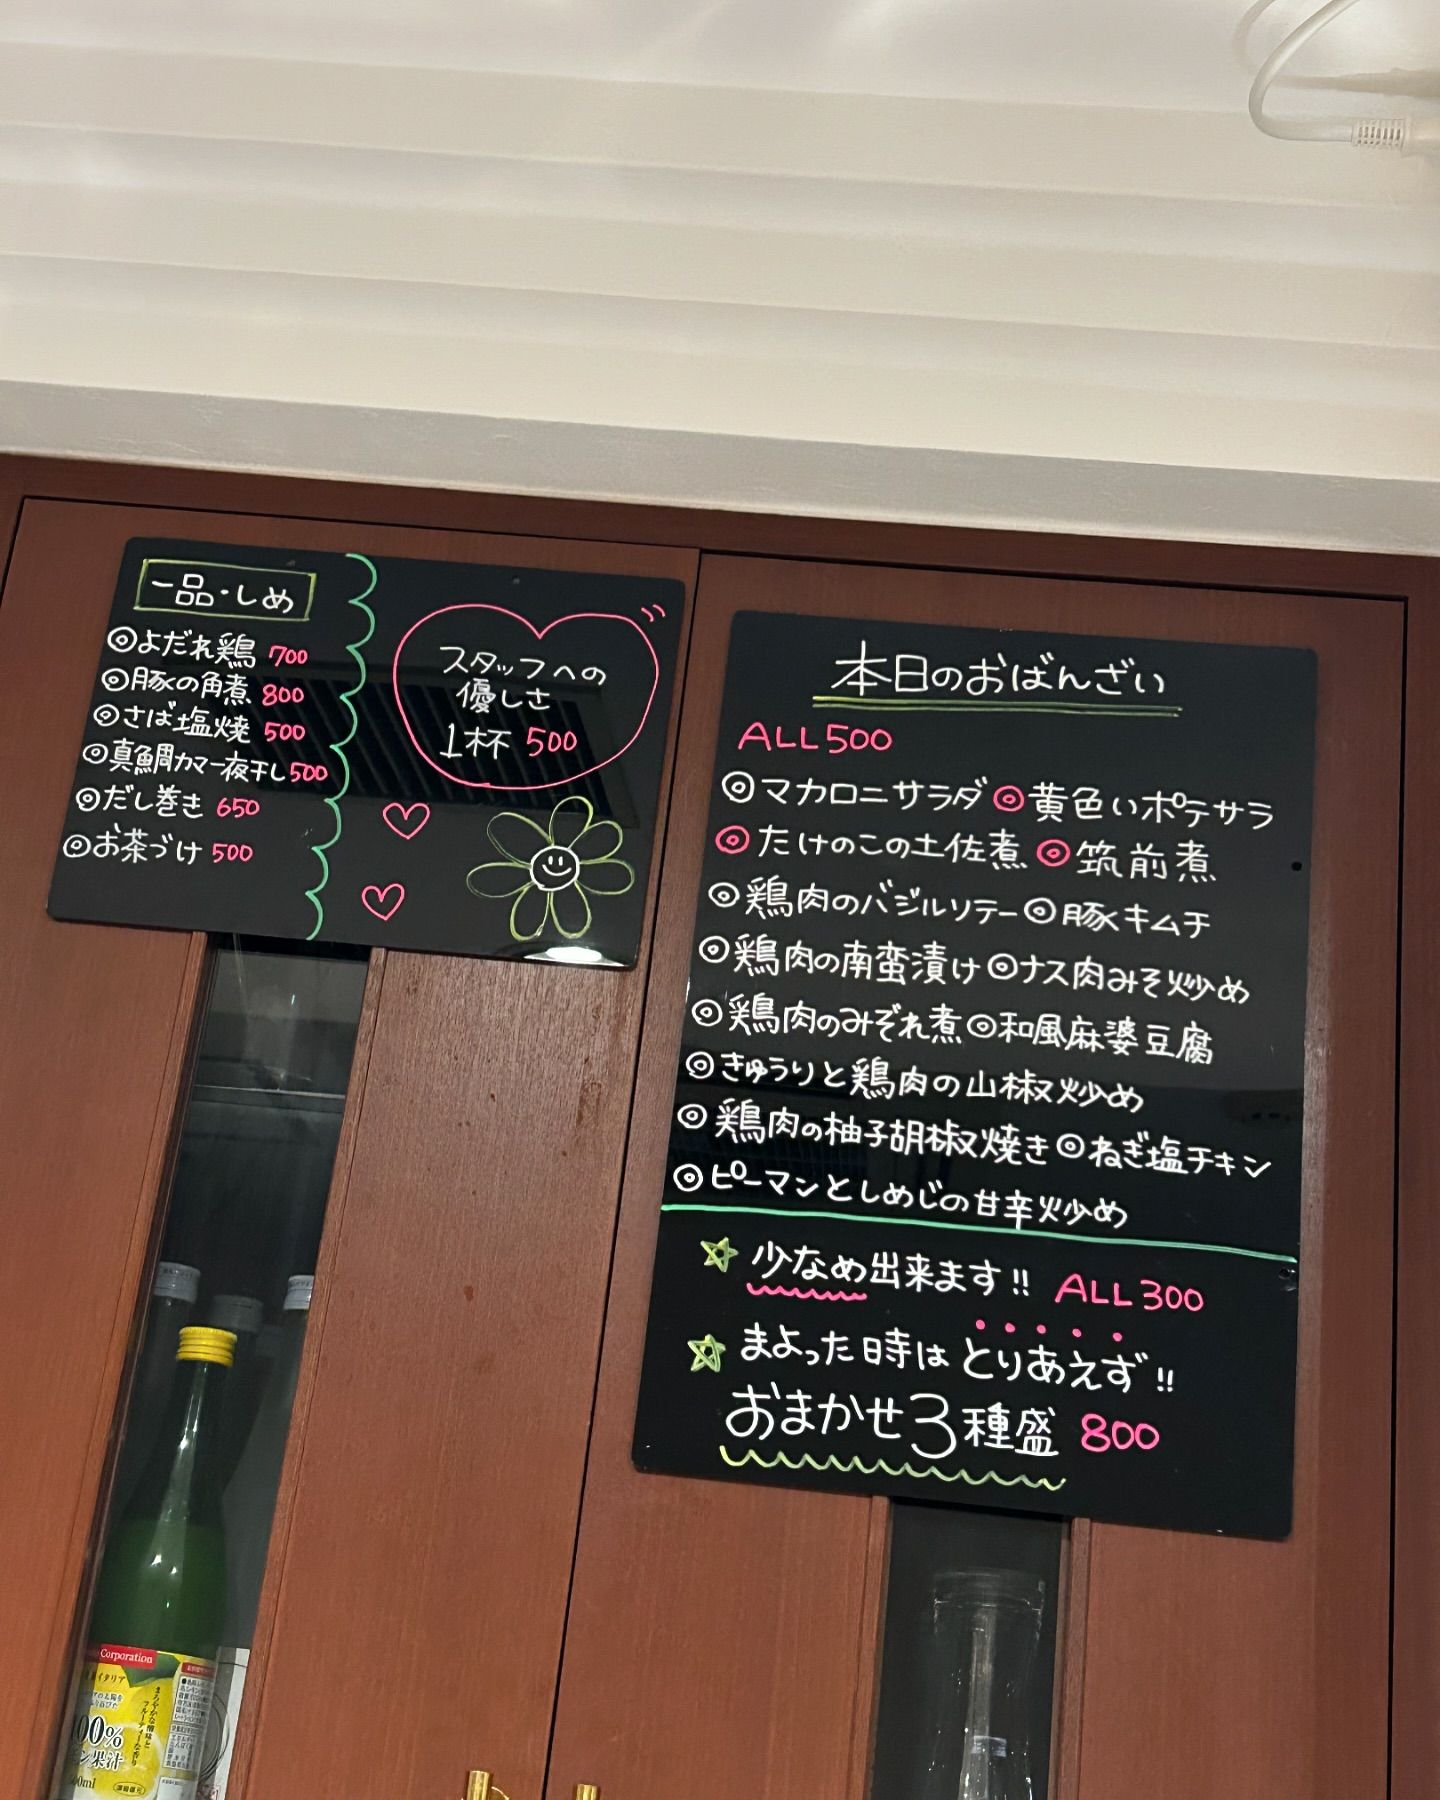 一品・しめ
◎よだれ鶏 700
◎豚の角煮 800
◎さば塩焼 500
◎真鯛カマ一夜干し500
◎だし巻き 650
◎お茶づけ 500
スタッフへの
優しさ
1杯 500
本日のおばんざい
ALL500
◎マカロニサラダ◎黄色いポテサラ
◎たけのこの土佐煮◎筑前煮
◎鶏肉のバジルソテー◎豚キムチ
◎鶏肉の南蛮漬け◎ナス肉みそ炒め
◎鶏肉のみぞれ煮◎和風麻婆豆腐
◎きゅうりと鶏肉の山椒炒め
◎鶏肉の柚子胡椒焼き◎ねぎ塩チキン
◎ピーマンとしめじの甘辛炒め
☆少なめ出来ます!! ALL300
☆まよった時はとりあえず!!
おまかせ3種盛 800
Corporation
イタリア
まろやかな酸味と
フルーティーな香り
100%
果汁